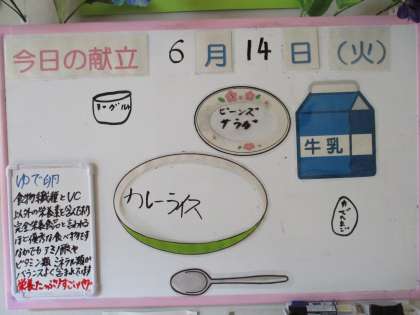 今日の献立 6月14日(火)
ヨーグルト
ビーンズ
サラダ
牛乳
カレーライス
ゆでたまご
ゆで卵
食物繊維とVC
以外の栄養素を含んでおり
完全栄養食品と言われる
ほど優秀な食べ物です
なかでもアミノ酸や
ビタミン類、ミネラル類が
バランスよく含まれています
栄養たっぷりすごいパワー